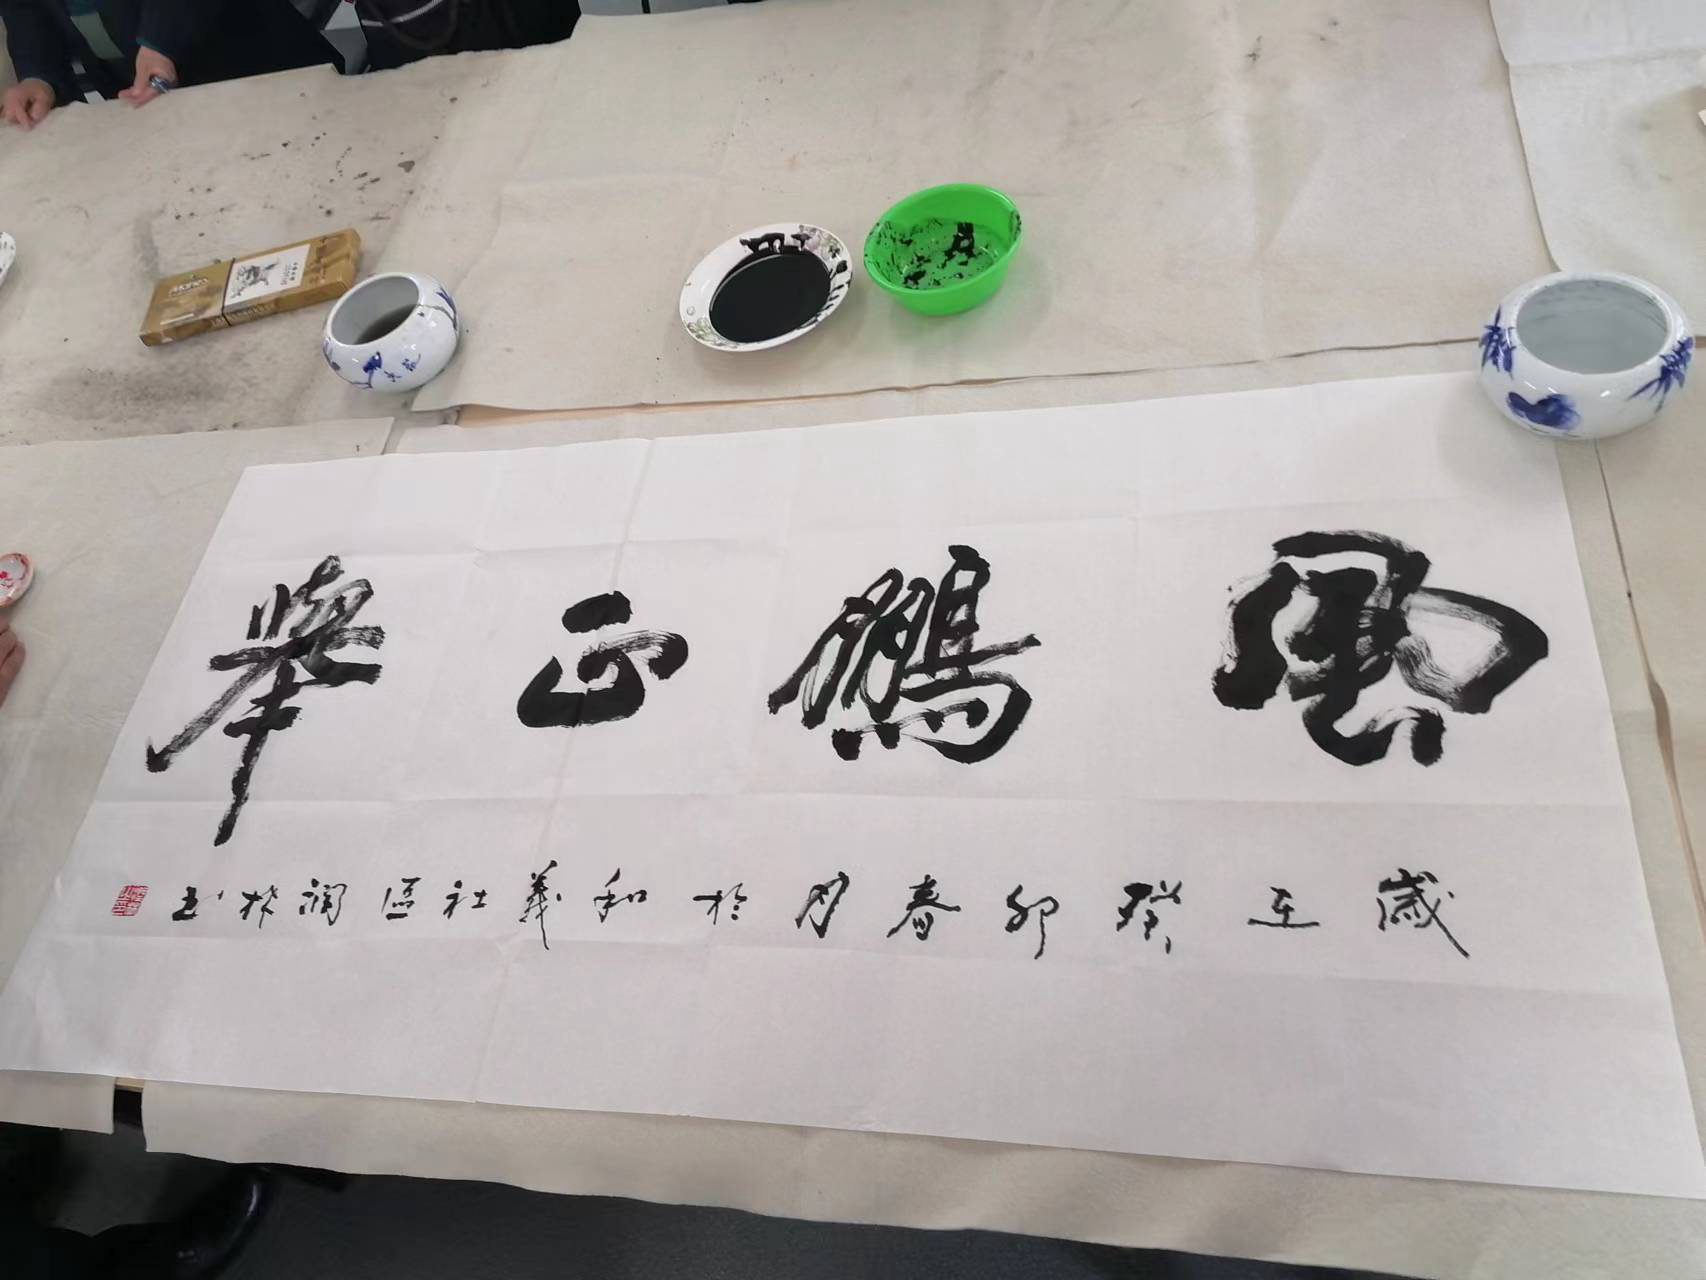 風鵬正舉
歲在癸卯春月於和義社區潤林书